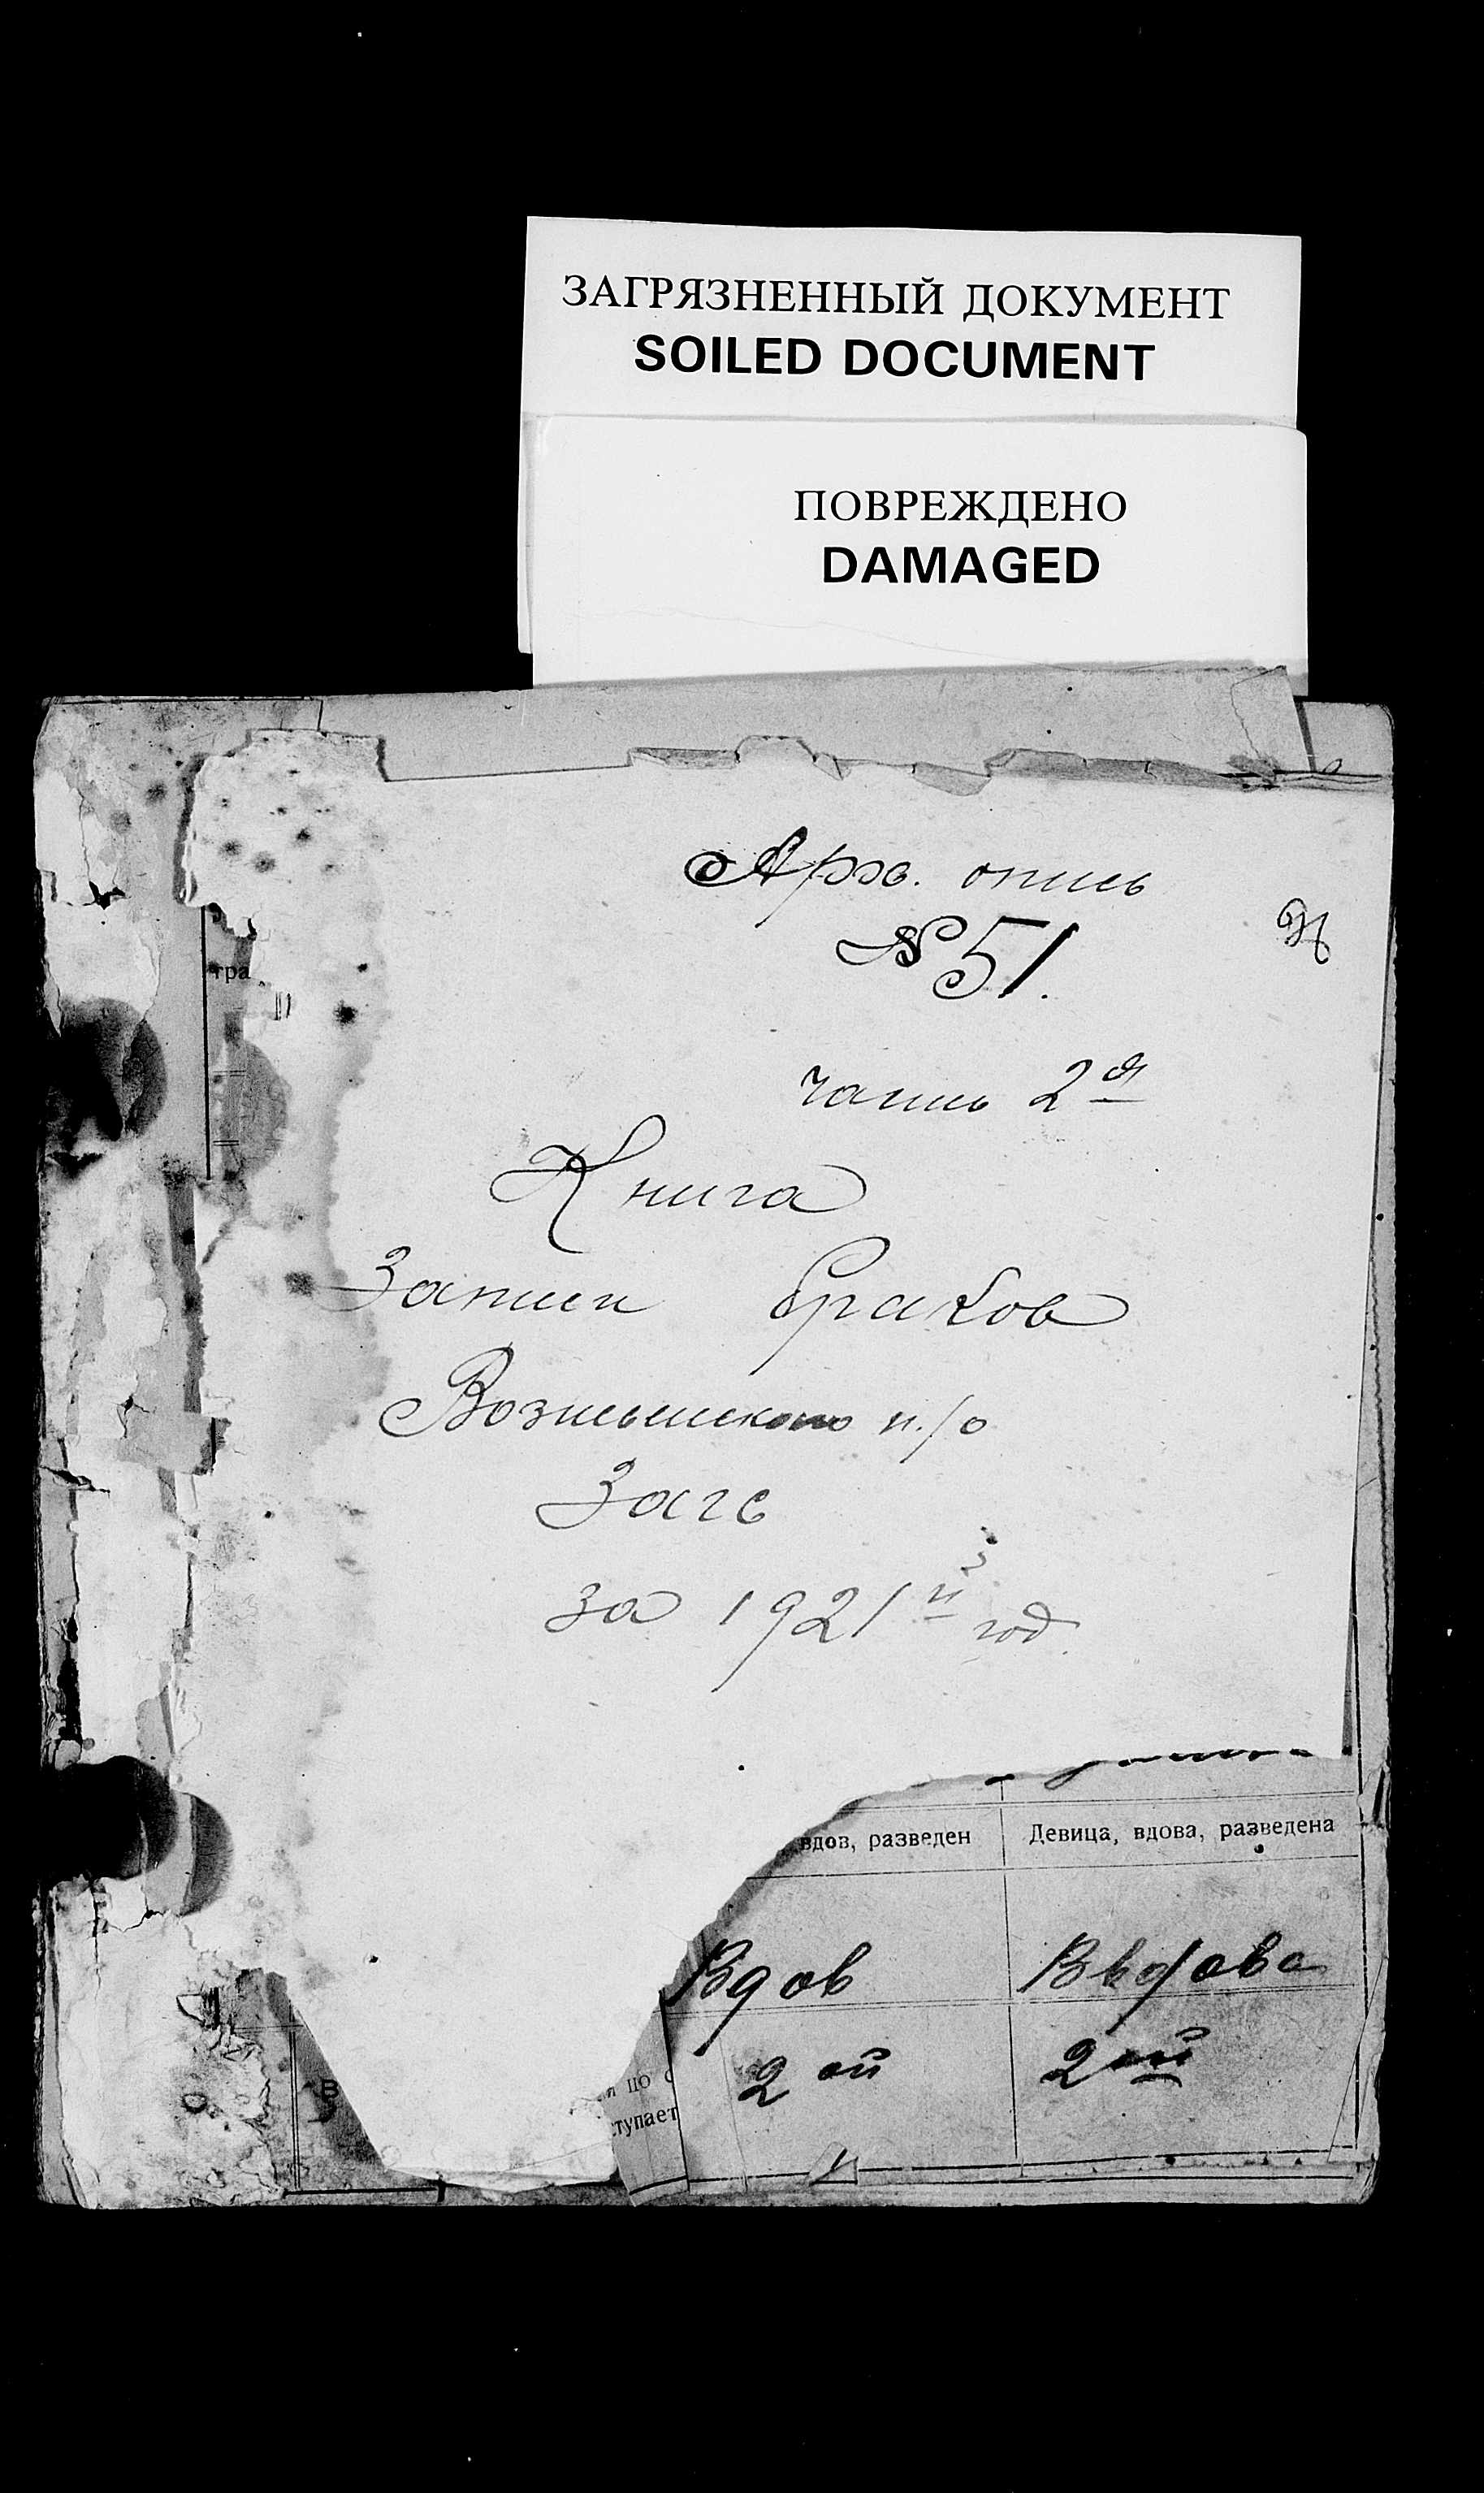 ЗАГРЯЗНЕННЫЙ ДОКУМЕНТ
SOILED DOCUMENT
ПОВРЕЖДЕНО
DAMAGED
Арх. опись
№ 51.
часть 2я
Книга
Записи браков
п./о
Загс
за 1921й год.
тра
вдов, разведен Девица, вдова, разведена
Вдов Вьдова
2ой 2ой
и по с
ступает